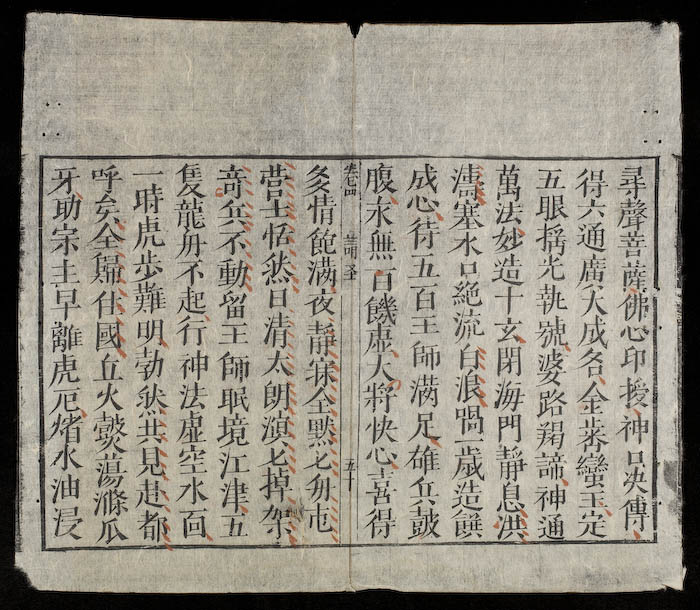 尋聲菩薩佛心印授神口決傳
得六通廣大成各金拳蠻王定
五眼搊光執號婆路羯諦神通
萬法妙造十玄閉海門靜息洪
濤塞水口絕流白浪喎一歲造饌
成心待五百王師滿足雄兵鼓
腹永無百饑肅大將快心喜得
卷七四 請聖 五十
爻情飽滿夜靜寐全默七毋屯
营士恬然日清太朗滇七掉架
奇兵不動留王師眠境江津五
隻龍毋不起行神法虛空水面
一時虎步難明勃然共見赴都
呼矣全歸住國丘火燬蕩滌瓜
牙助宗主早離虎厄熆水油浸